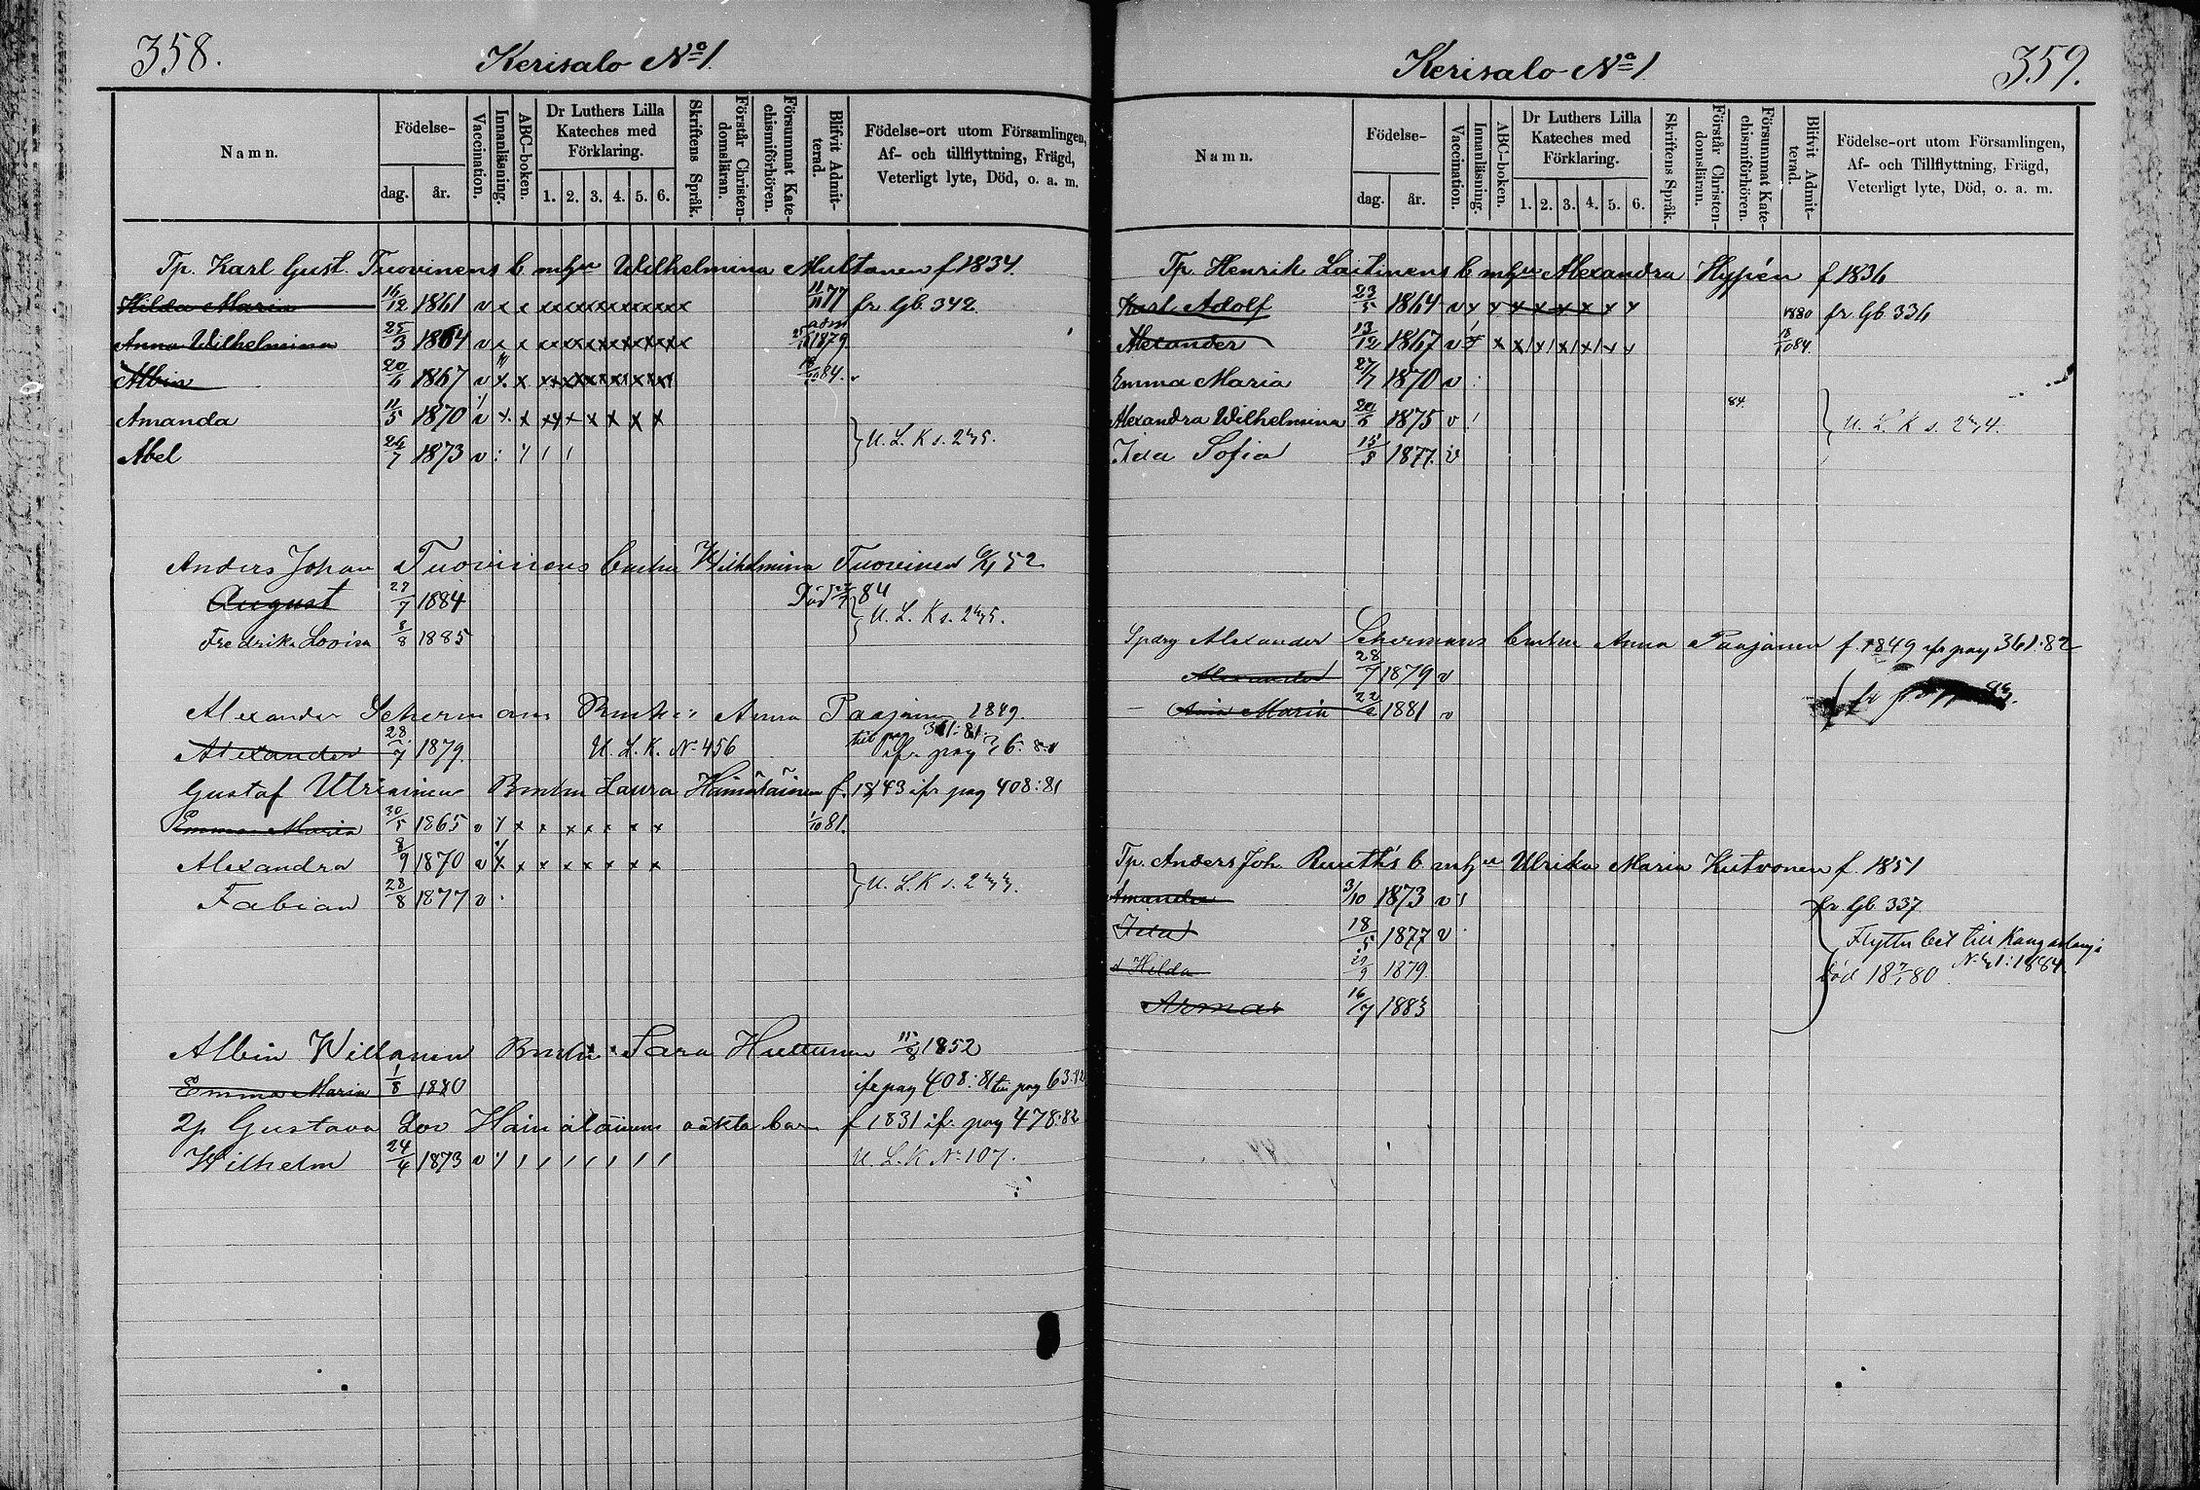 358.
Kerisalo No 1.
Namn.
Födelse-
dag.
år.
Vaccination.
Innanläsning.
ABC-boken.
Dr Luthers Lilla Kateches med Förklaring.
1. 2. 3. 4. 5. 6.
Skriftens Språk.
Förstår Christendomsläran.
Försummat Katechismiförhören.
Blifvit Admitterad.
Födelse-ort utom Församlingen,
Af- och tillflyttning, Frägd,
Veterligt lyte, Död, o. a. m.
Tp. Karl Gust. Tuovinens b mhu Wilhelmina Multanen f 1834.
Hilda Maria 16/12 1861 v x x x x x x x x x x x x x 11/11 77 fr. Gb. 342.
Anna Wilhelmina 25/3 1864 v x x x x x x x x x x x x x adm 1879
Albin 20/6 1867 v x x x x x x x x x x x 84.
Amanda 11/5 1870 v x x x x x x x x
Abel 26/7 1873 v U. L. K s. 275.
Anders Johan Tuovinens b mhu Wilhelmina Tuovinen 52
August 27/7 1884 Död 84
Fredrika Lovisa 8/8 1885 U. L. K s. 275.
Alexander Schermans Bmhu Anna Paajanen 1849.
Alexander 28/7 1879. U. L. K. No 456 till pag 361:81.
Gustaf Utriainen Bmhu Laura Hämäläinen f. 1843 ifr pag 408:81
Emma Maria 30/5 1865 v x x x x x x x x 1/10 81.
Alexandra 8/9 1870 v x x x x x x x x
Fabian 28/8 1877 v U. L. K s. 277.
Albin Willanen Bmhu Sara Huttunen 15/8 1852
Emma Maria 1/8 1880 ifr pag 408:81 till pag 63:82
Gustava Lov Hämäläinens oäkta bar f 1831 ifr pag 478:82
Wilhelm 24/4 1873 v U. L. K No 107.
Kerisalo No 1
359.
Namn.
Födelse-
dag.
år.
Vaccination.
Innanläsning.
ABC-boken.
Dr Luthers Lilla Kateches med Förklaring.
1. 2. 3. 4. 5. 6.
Skriftens Språk.
Förstår Christendomsläran.
Försummat Katechismiförhören.
Blifvit Admitterad.
Födelse-ort utom Församlingen,
Af- och Tillflyttning, Frägd,
Veterligt lyte, Död, o. a. m.
Tp. Henrik Laitinens b mhu Alexandra Hyppén f 1836
Karl Adolf 23/5 1864 v x x x x x x x x 1880 fr. Gb 336
Alexander 13/12 1867 v x x x x x x x x 18/10 84.
Emma Maria 27/7 1870 v
Alexandra Wilhelmina 20/6 1875 v 84. U. L. K s. 274.
Ida Sofia 15/3 1877. v
Alexander Schermans bmhu Anna Paajanen f. 1849 ifr pag 361:82
Alexander 28/7 1879 v
Anna Maria 22/2 1881 v
Tp. Anders Joh. Ruuth's b mhu Ulrika Maria Kutvonen f. 1851
Amanda 3/10 1873 v fr. Gb 337
Ida 18/5 1877 v Flyttn bet till Kangaslampi
d Hilda 29/9 1879. död 18 80 No 41:1884.
16/7 1883